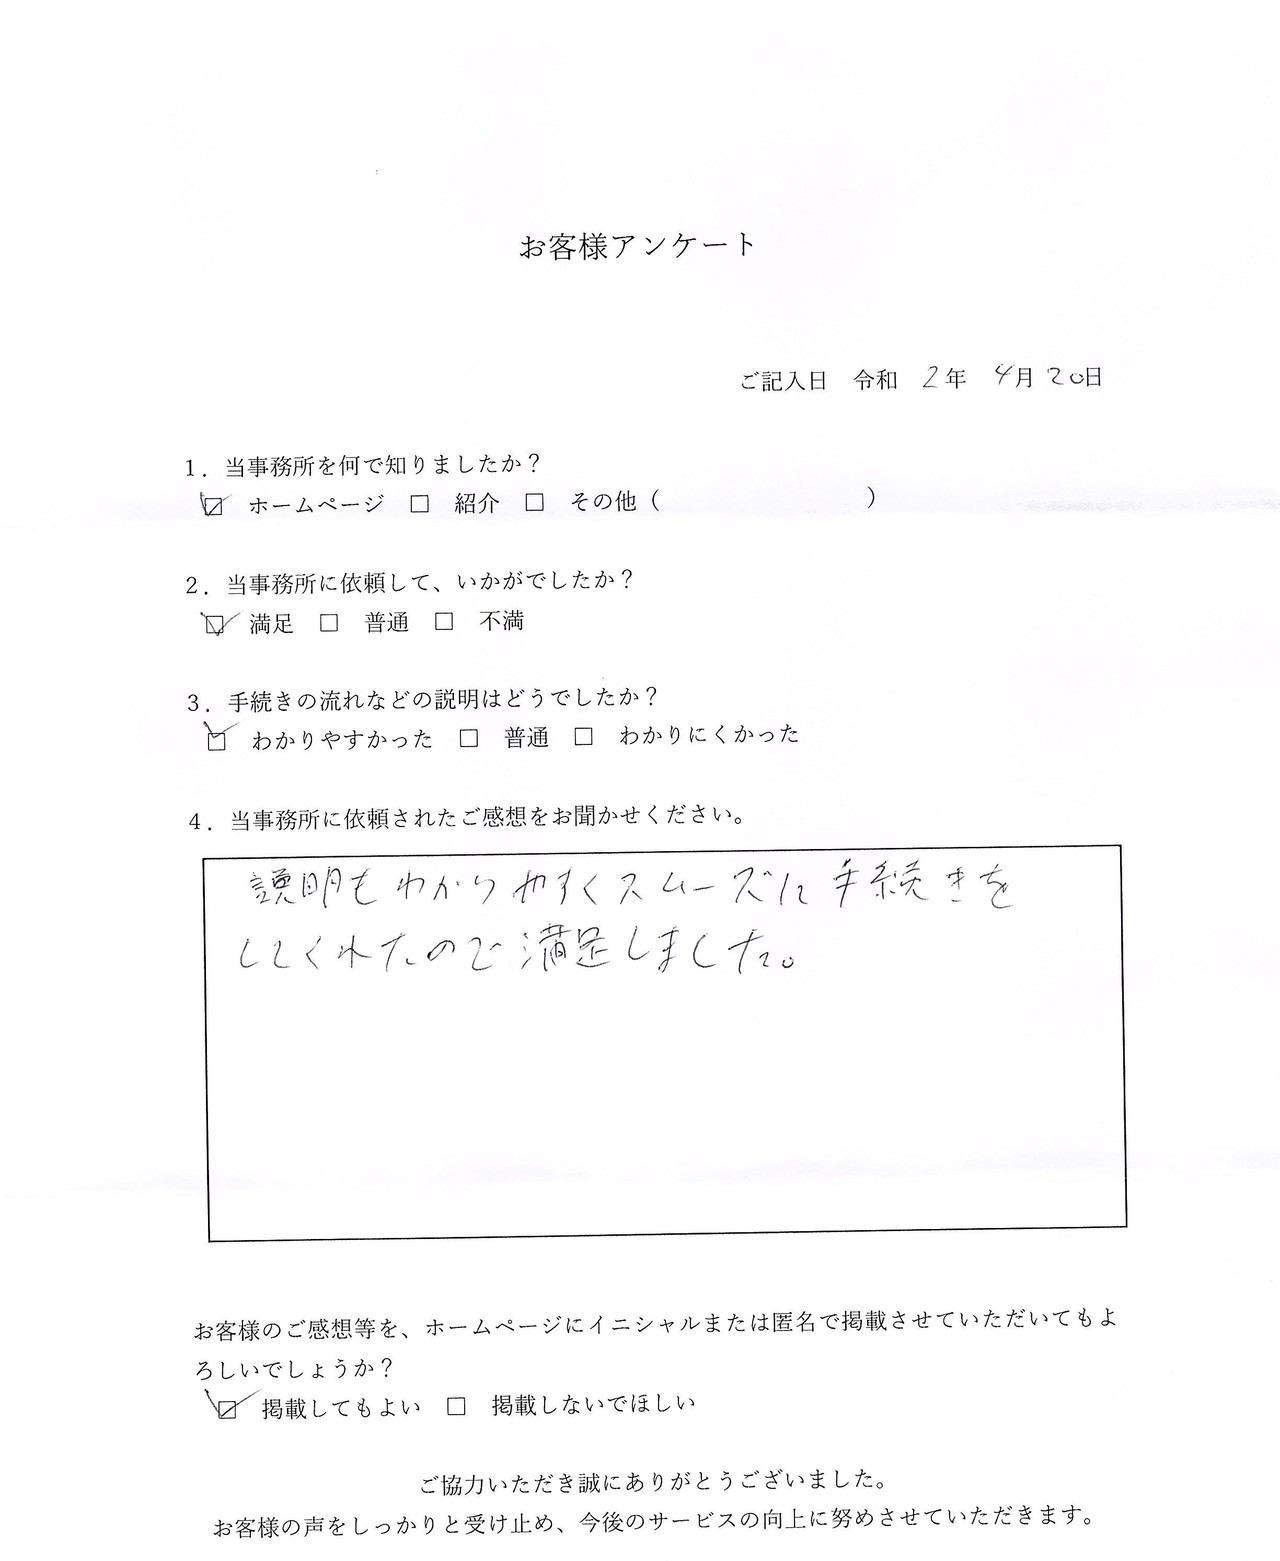 お客様アンケート
ご記入日　令和　2年　4月20日
1．当事務所を何で知りましたか？
☑　ホームページ　□　紹介　□　その他（　　　　　　　　　）
2．当事務所に依頼して、いかがでしたか？
☑　満足　□　普通　□　不満
3．手続きの流れなどの説明はどうでしたか？
☑　わかりやすかった　□　普通　□　わかりにくかった
4．当事務所に依頼されたご感想をお聞かせください。
説明もわかりやすくスムーズに手続きを
してくれたので満足しました。
お客様のご感想等を、ホームページにイニシャルまたは匿名で掲載させていただいてもよ
ろしいでしょうか？
☑　掲載してもよい　□　掲載しないでほしい
ご協力いただき誠にありがとうございました。
お客様の声をしっかりと受け止め、今後のサービスの向上に努めさせていただきます。